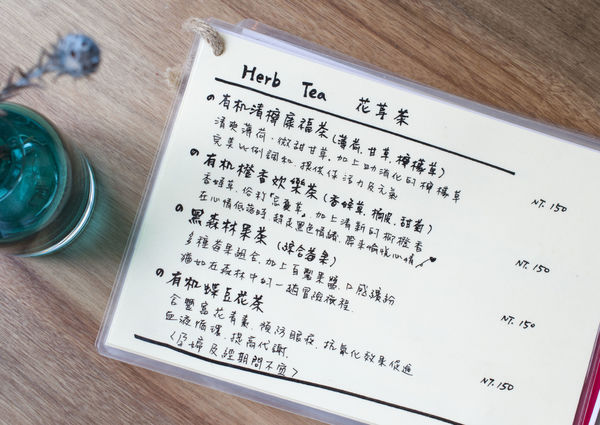 Herb Tea 花草茶
有机清檸康福茶(薄荷、甘草、檸檬草)
清爽薄荷、微甜甘草、加上助消化的檸檬草
完美比例調和,提供你活力及元氣
NT. 150
有机橙香欢樂茶(香蜂草、橘皮、甜菊)
香蜂草、俗稱「忘憂草」加上清新的柳橙香
在心情低落時,趕走黑色情緒,帶來愉悅心情
NT. 150
黑森林果茶(綜合莓果)
多種莓果組合,加上自製果醬,口感繽紛
猶如在森林中的一趟冒險旅程.
NT. 150
有机蝶豆花茶
含豐富花青素,預防眼疾,抗氧化效果促進
血液循環、提高代謝.
<孕婦及經期間不宜>
NT. 150